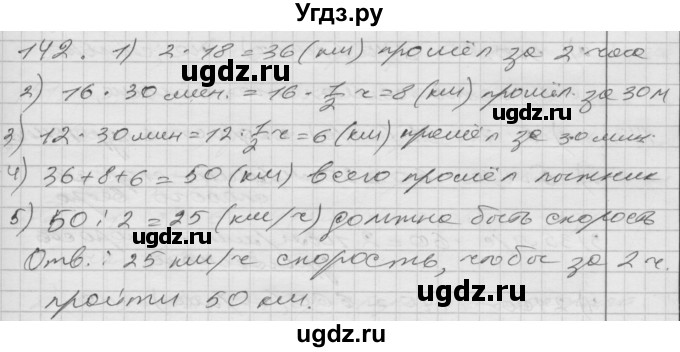 Угдз.ру
142. 1) 2 · 18 = 36 (км) прошёл за 2 часа
ugdz.ru
2) 16 · 30 мин. = 16 · 1/2 ч = 8 (км) прошёл за 30 м
ugdz.ru
3) 12 · 30 мин = 12 · 1/2 ч = 6 (км) прошёл за 30 мин.
4) 36 + 8 + 6 = 50 (км) всего прошёл лыжник
ugdz.ru
5) 50 : 2 = 25 (км/ч) должна быть скорость
Отв.: 25 км/ч скорость, чтобы за 2 ч.
ugdz.ru
пройти 50 км.
ugdz.ru